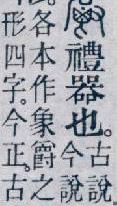 禮器也。
古說
今說
各本作象爵之
形四字。今正。古